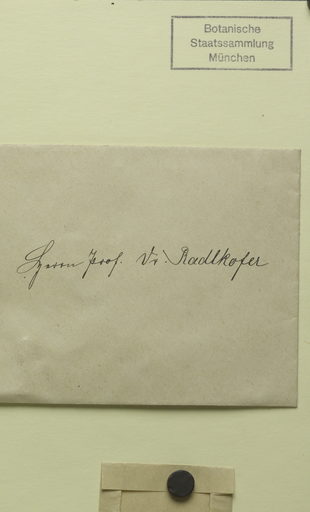 Botanische
Staatssammlung
München
Herrn Prof. Dr. Radlkofer